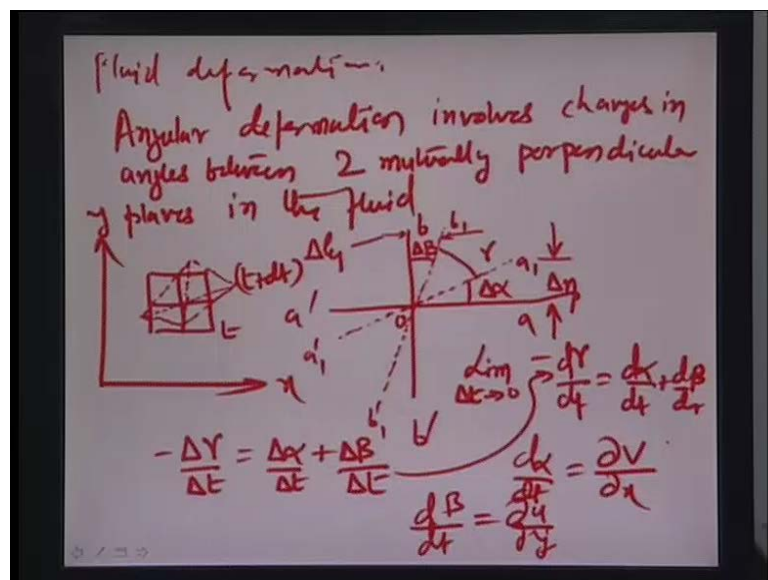 Fluid deformation.
Angular deformation involves changes in
angles between 2 mutually perpendicular
planes in the fluid
y
b b₁
Δβ
γ
a₁
Δα
Δη
(t+dt)
t
a'
o
a
a₁'
b₁'
b'
x
lim Δt→0 -dγ/dt = dα/dt + dβ/dt
-Δγ/Δt = Δα/Δt + Δβ/Δt
dα/dt = ∂V/∂x
dβ/dt = ∂u/∂y